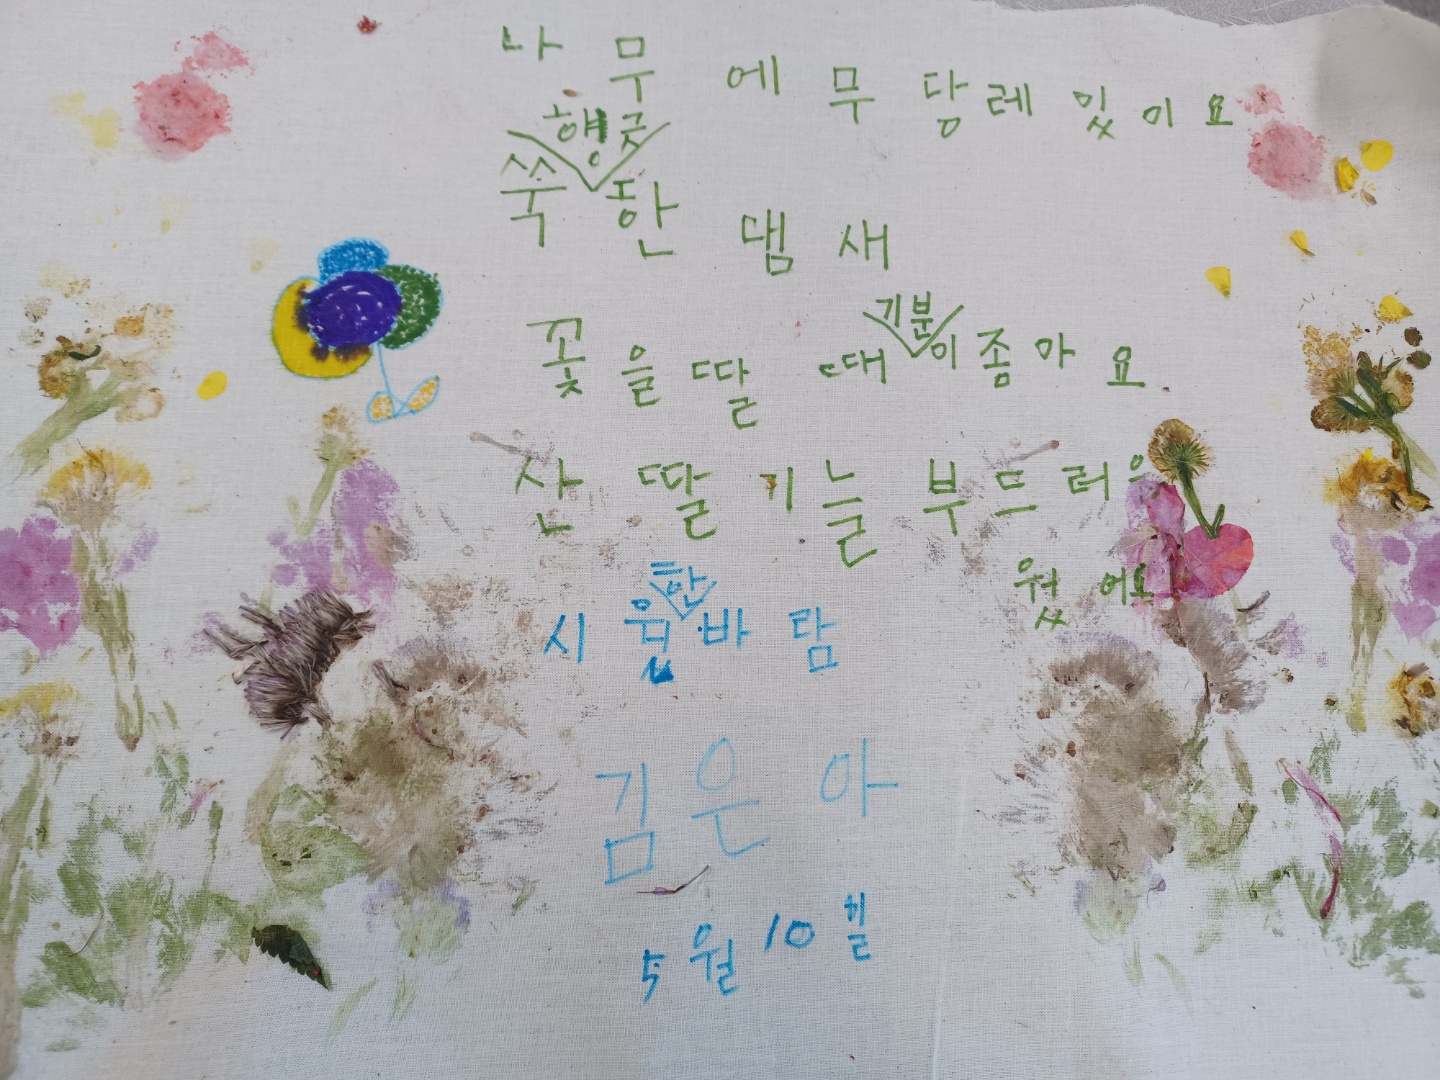 나무에 무당레 있이요
쑥 향긋 한 냄새
꽃을 딸 때 기분이 좀아요
산딸기늘 부드러우
웠어요
시원한 바람
김은아
5월 10일